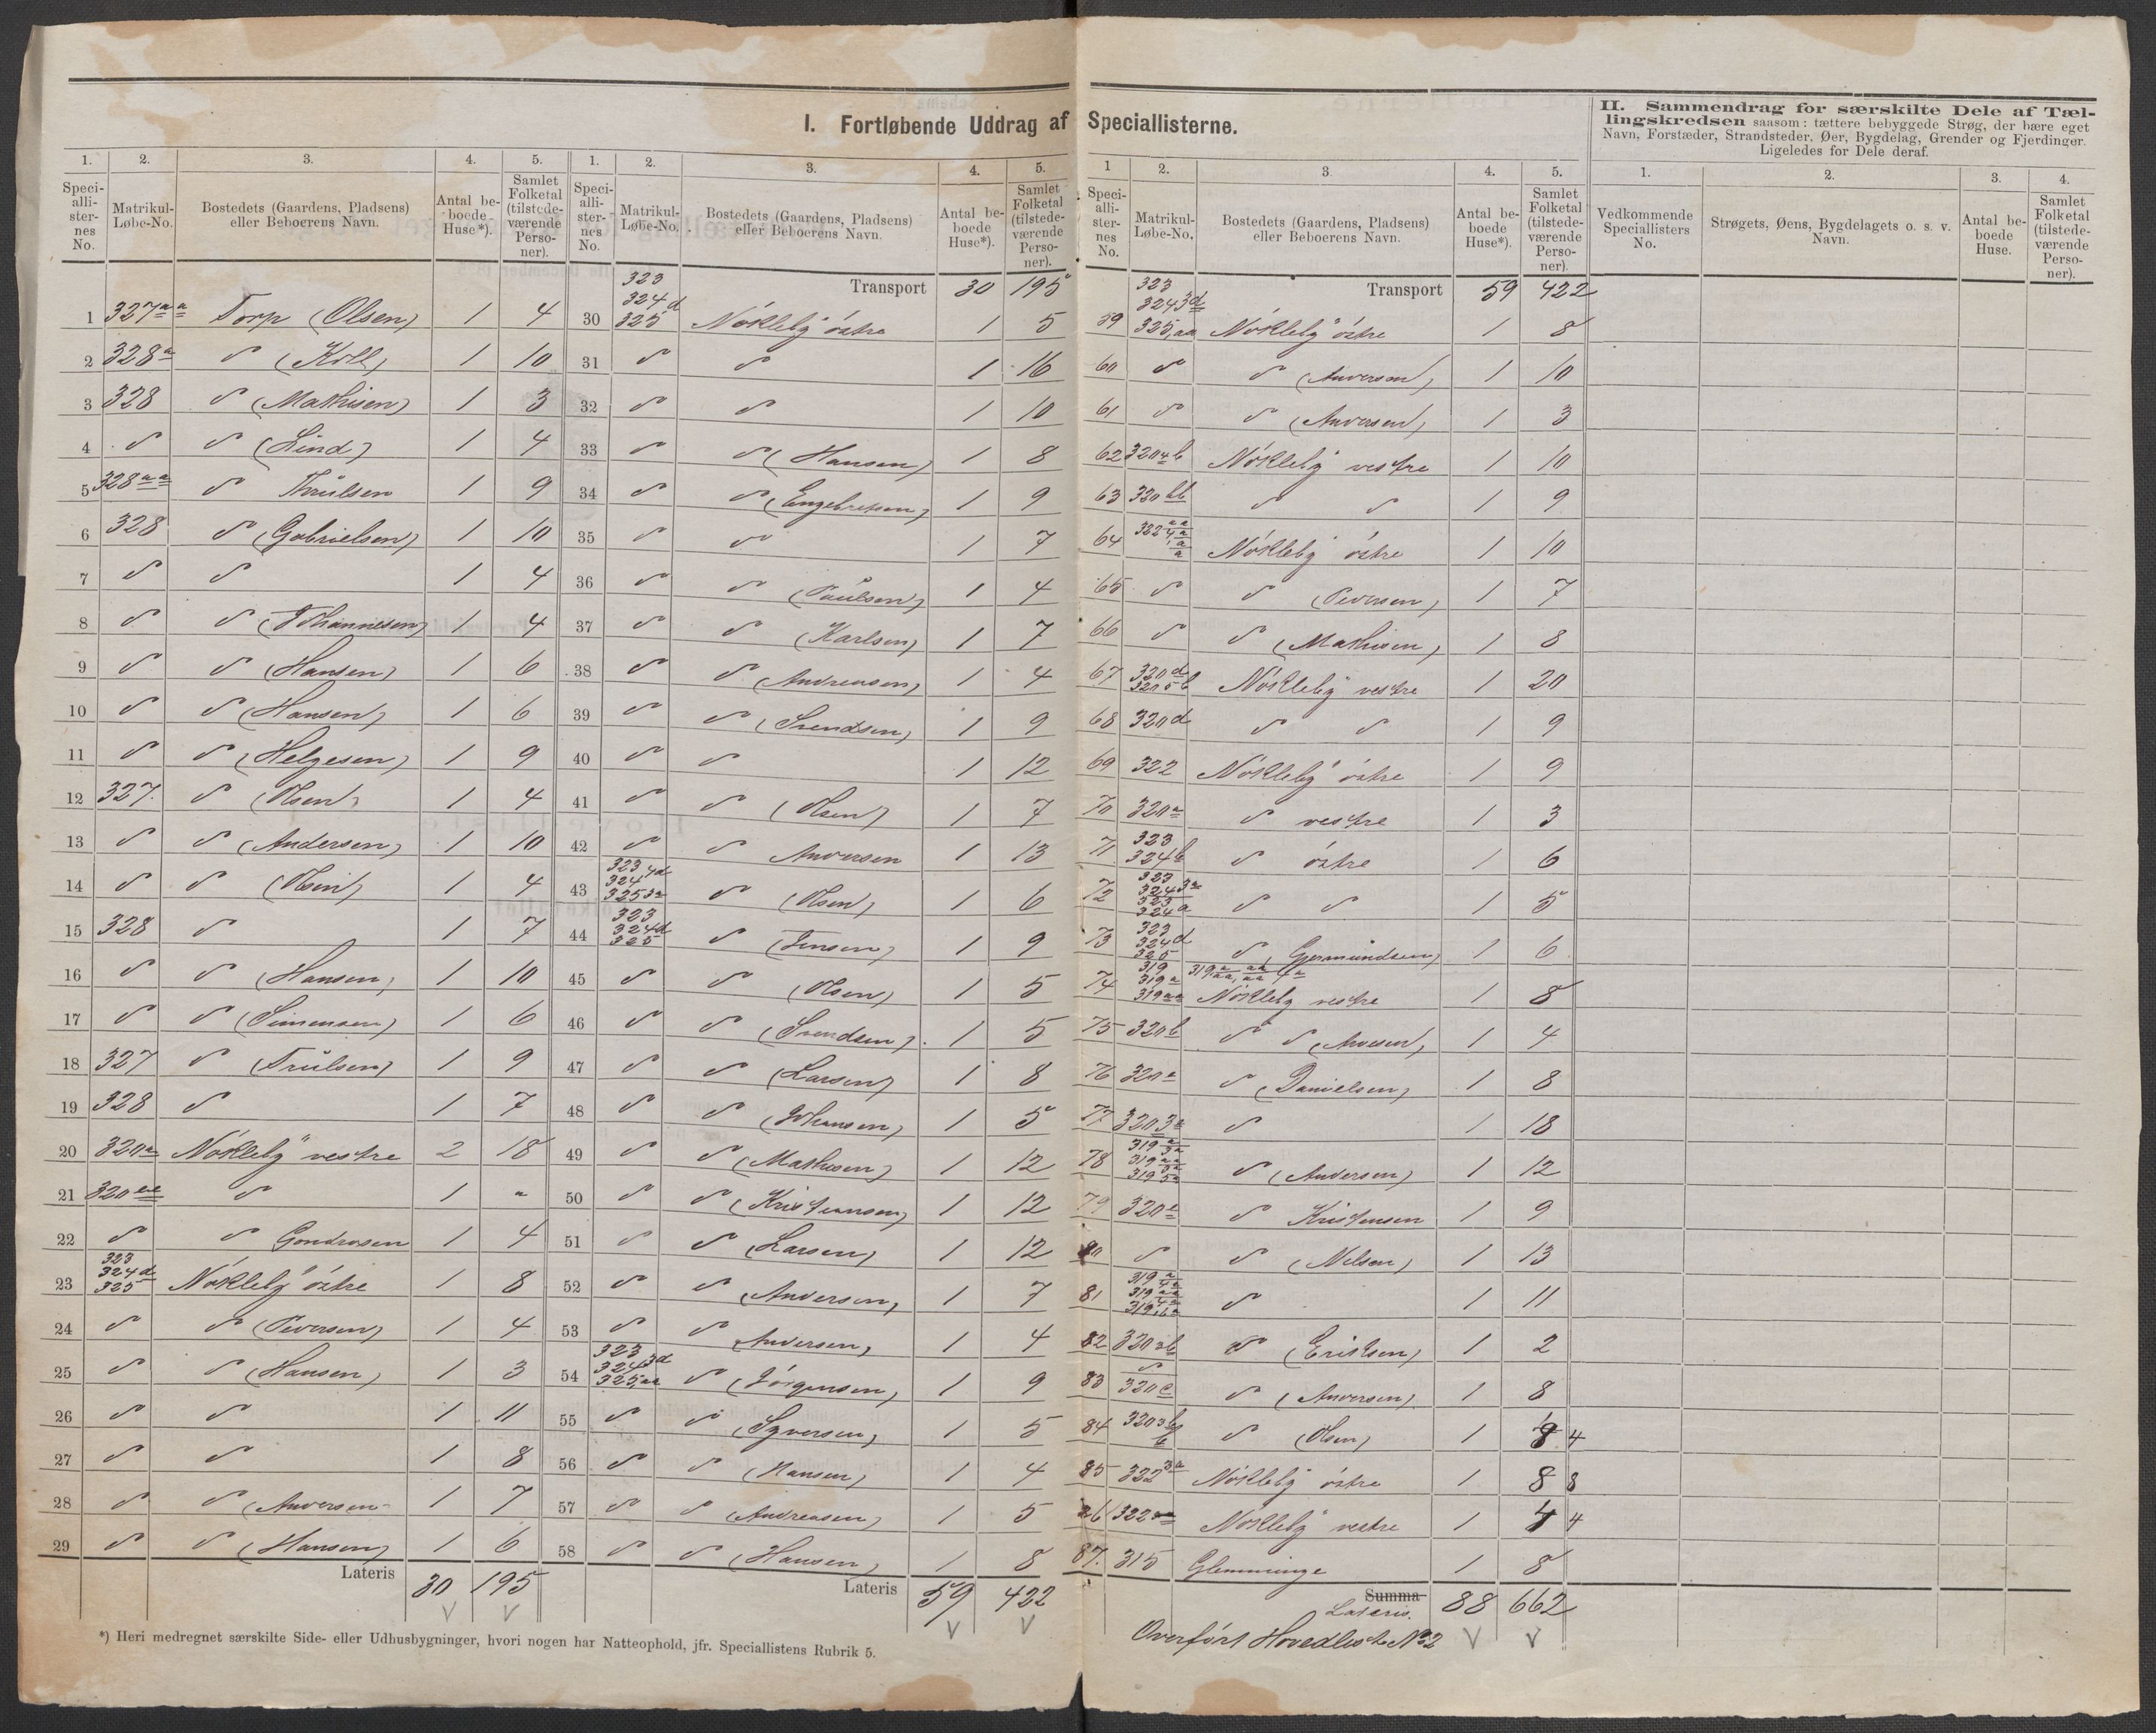 I. Fortløbende Uddrag af Speciallisterne.
II. Sammendrag for særskilte Dele af Tæl-
lingskredsen saasom: tættere bebyggede Strøg, der bære eget
Navn, Forstæder, Strandsteder, Øer, Bygdelag, Grender og Fjerdinger.
Ligeledes for Dele deraf.
1. 2. 3. 4. 5.
Speciallisternes No. Matrikul-Løbe-No. Bostedets (Gaardens, Pladsens) eller Beboerens Navn. Antal beboede Huse*). Samlet Folketal (tilstedeværende Personer).
1 327 a a Torp (Olsen) 1 4
2 328 a " (Koll) 1 10
3 328 " (Mathisen) 1 3
4 " " (Lind) 1 4
5 328 a a " Thrulsen 1 9
6 328 " (Gabrielsen) 1 10
7 " " 1 4
8 " " (Johannesen) 1 4
9 " " (Hansen) 1 6
10 " " (Hansen) 1 6
11 " " (Helgesen) 1 9
12 327. " (Olsen) 1 4
13 " " (Andersen) 1 10
14 " " (Olsen) 1 4
15 328 " 1 7
16 " " (Hansen) 1 10
17 " " (Simensen) 1 6
18 327 " (Trulsen) 1 9
19 328 " 1 7
20 320 a Nökleby vestre 2 18
21 320 " 1 "
22 " " 1 4
23 323 324 d 325 Nökleby östre 1 8
24 " " (Pedersen) 1 4
25 " " (Hansen) 1 3
26 " " 1 11
27 " " 1 8
28 " " (Andersen 1 7
29 " " (Hansen) 1 6
Lateris 30 195
1. 2. 3. 4. 5.
Speciallisternes No. Matrikul-Løbe-No. Bostedets (Gaardens, Pladsens) eller Beboerens Navn. Antal beboede Huse*). Samlet Folketal (tilstedeværende Personer).
Transport 30 195
30 323 324 d 325 Nökleby östre 1 5
31 " " 1 16
32 " " 1 10
33 " " (Hansen) 1 8
34 " " (Engebretsen) 1 9
35 " " 1 7
36 " " (Paulsen) 1 4
37 " " (Karlsen) 1 7
38 " " (Andreasen) 1 4
39 " " (Svendsen) 1 9
40 " " 1 12
41 " " (Olsen) 1 7
42 " " Andersen 1 13
43 323 324 4d 325 3a " (Olsen) 1 6
44 323 324 d 325 " (Jensen) 1 9
45 " " (Olsen) 1 5
46 " " (Svendsen) 1 5
47 " " (Larsen) 1 8
48 " " (Johansen) 1 5
49 " " (Mathisen) 1 12
50 " " (Kristiansen) 1 12
51 " " (Larsen) 1 12
52 " " (Andersen) 1 7
53 " " Andersen) 1 4
54 323 324 3d 325, aa " (Jörgensen) 1 9
55 " " (Syversen) 1 5
56 " " (Hansen) 1 4
57 " " (Andreasen) 1 5
58 " " (Hansen) 1 8
Lateris 59 422
1 2. 3. 4. 5.
Speciallisternes No. Matrikul-Løbe-No. Bostedets (Gaardens, Pladsens) eller Beboerens Navn. Antal beboede Huse*). Samlet Folketal (tilstedeværende Personer).
Transport 59 422
59 323 324 3d 325, aa Nökleby östre 1 8
60 " " (Andersen) 1 10
61 " " (Andersen) 1 3
62 320 4 b Nökleby vestre 1 10
63 320 bb " " 1 9
64 322 Nökleby östre 1 10
65 " " (Pedersen) 1 7
66 " " (Mathisen) 1 8
67 320 d 320 5 b Nökleby vestre 1 20
68 320 d " " 1 9
69 322 Nökleby östre 1 9
70 320 a " vestre 1 3
71 323 324 b " östre 1 6
72 323 324 3a 323 324 a " " 1 5
73 323 324 d 325 " Gjermundsen) 1 6
74 319 319 a 319 aa Nökleby vestre 1 8
75 320 b " " 1 4
76 320 a " (Danielsen) 1 8
77 320 3 a " 1 18
78 319 319 319 " (Andersen) 1 12
79 320 " Kristensen 1 9
80 " " (Nilsen) 1 13
81 319 319 319 " 1 11
82 320 b " (Eriksen) 1 2
83 " 320 e " (Andersen) 1 8
84 320 3 b " (Olsen) 1 4
85 322 3a Nökleby östre 1 8 8
86 322 Nökleby vestre 1 4 4
87. 315 Glemminge 1 8
Summa
Lateris. 88 662
Overfört Hovedliste No 2
1. 2. 3. 4.
Vedkommende Speciallisters No. Strøgets, Øens, Bygdelagets o. s. v. Navn. Antal beboede Huse. Samlet Folketal (tilstedeværende Personer).
*) Heri medregnet særskilte Side- eller Udhusbygninger, hvori nogen har Natteophold, jfr. Speciallistens Rubrik 5.